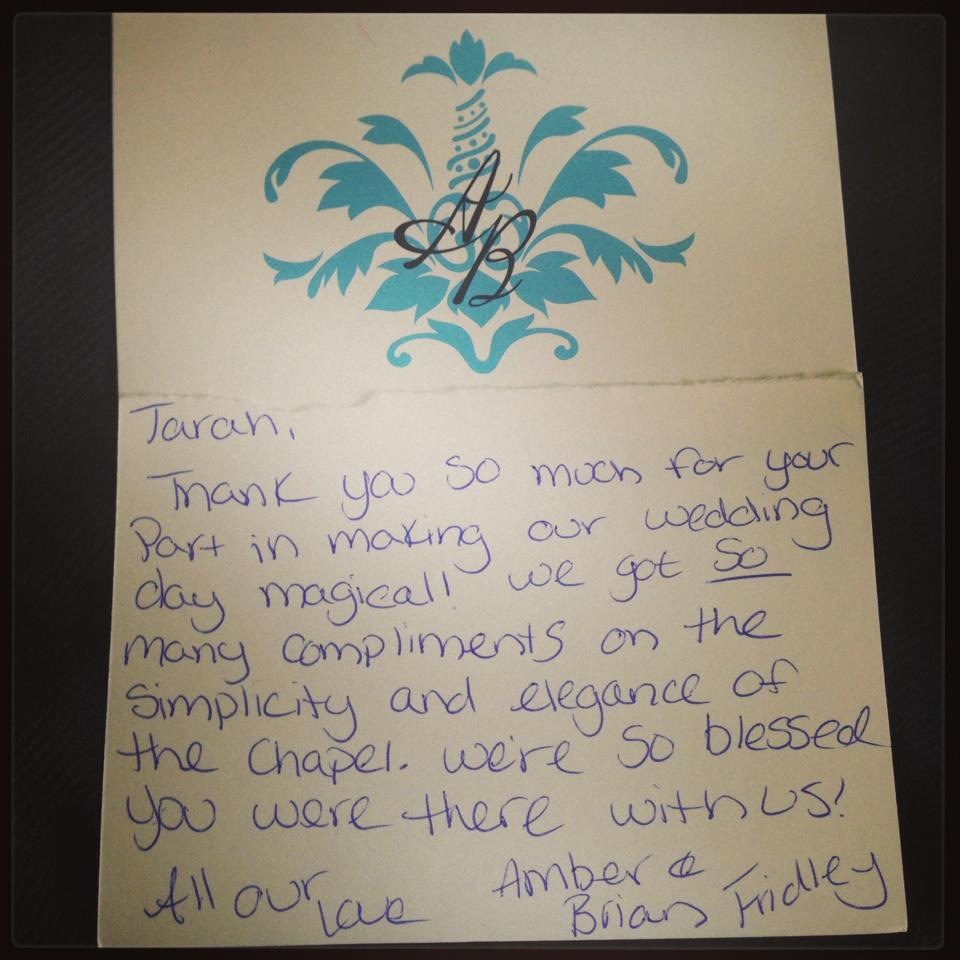 AB
Tarah,
Thank you so much for your
Part in making our wedding
day magical! we got So
many compliments on the
Simplicity and elegance of
the Chapel. we're so blessed
you were there with us!
All our love Amber &
Brian Fridley